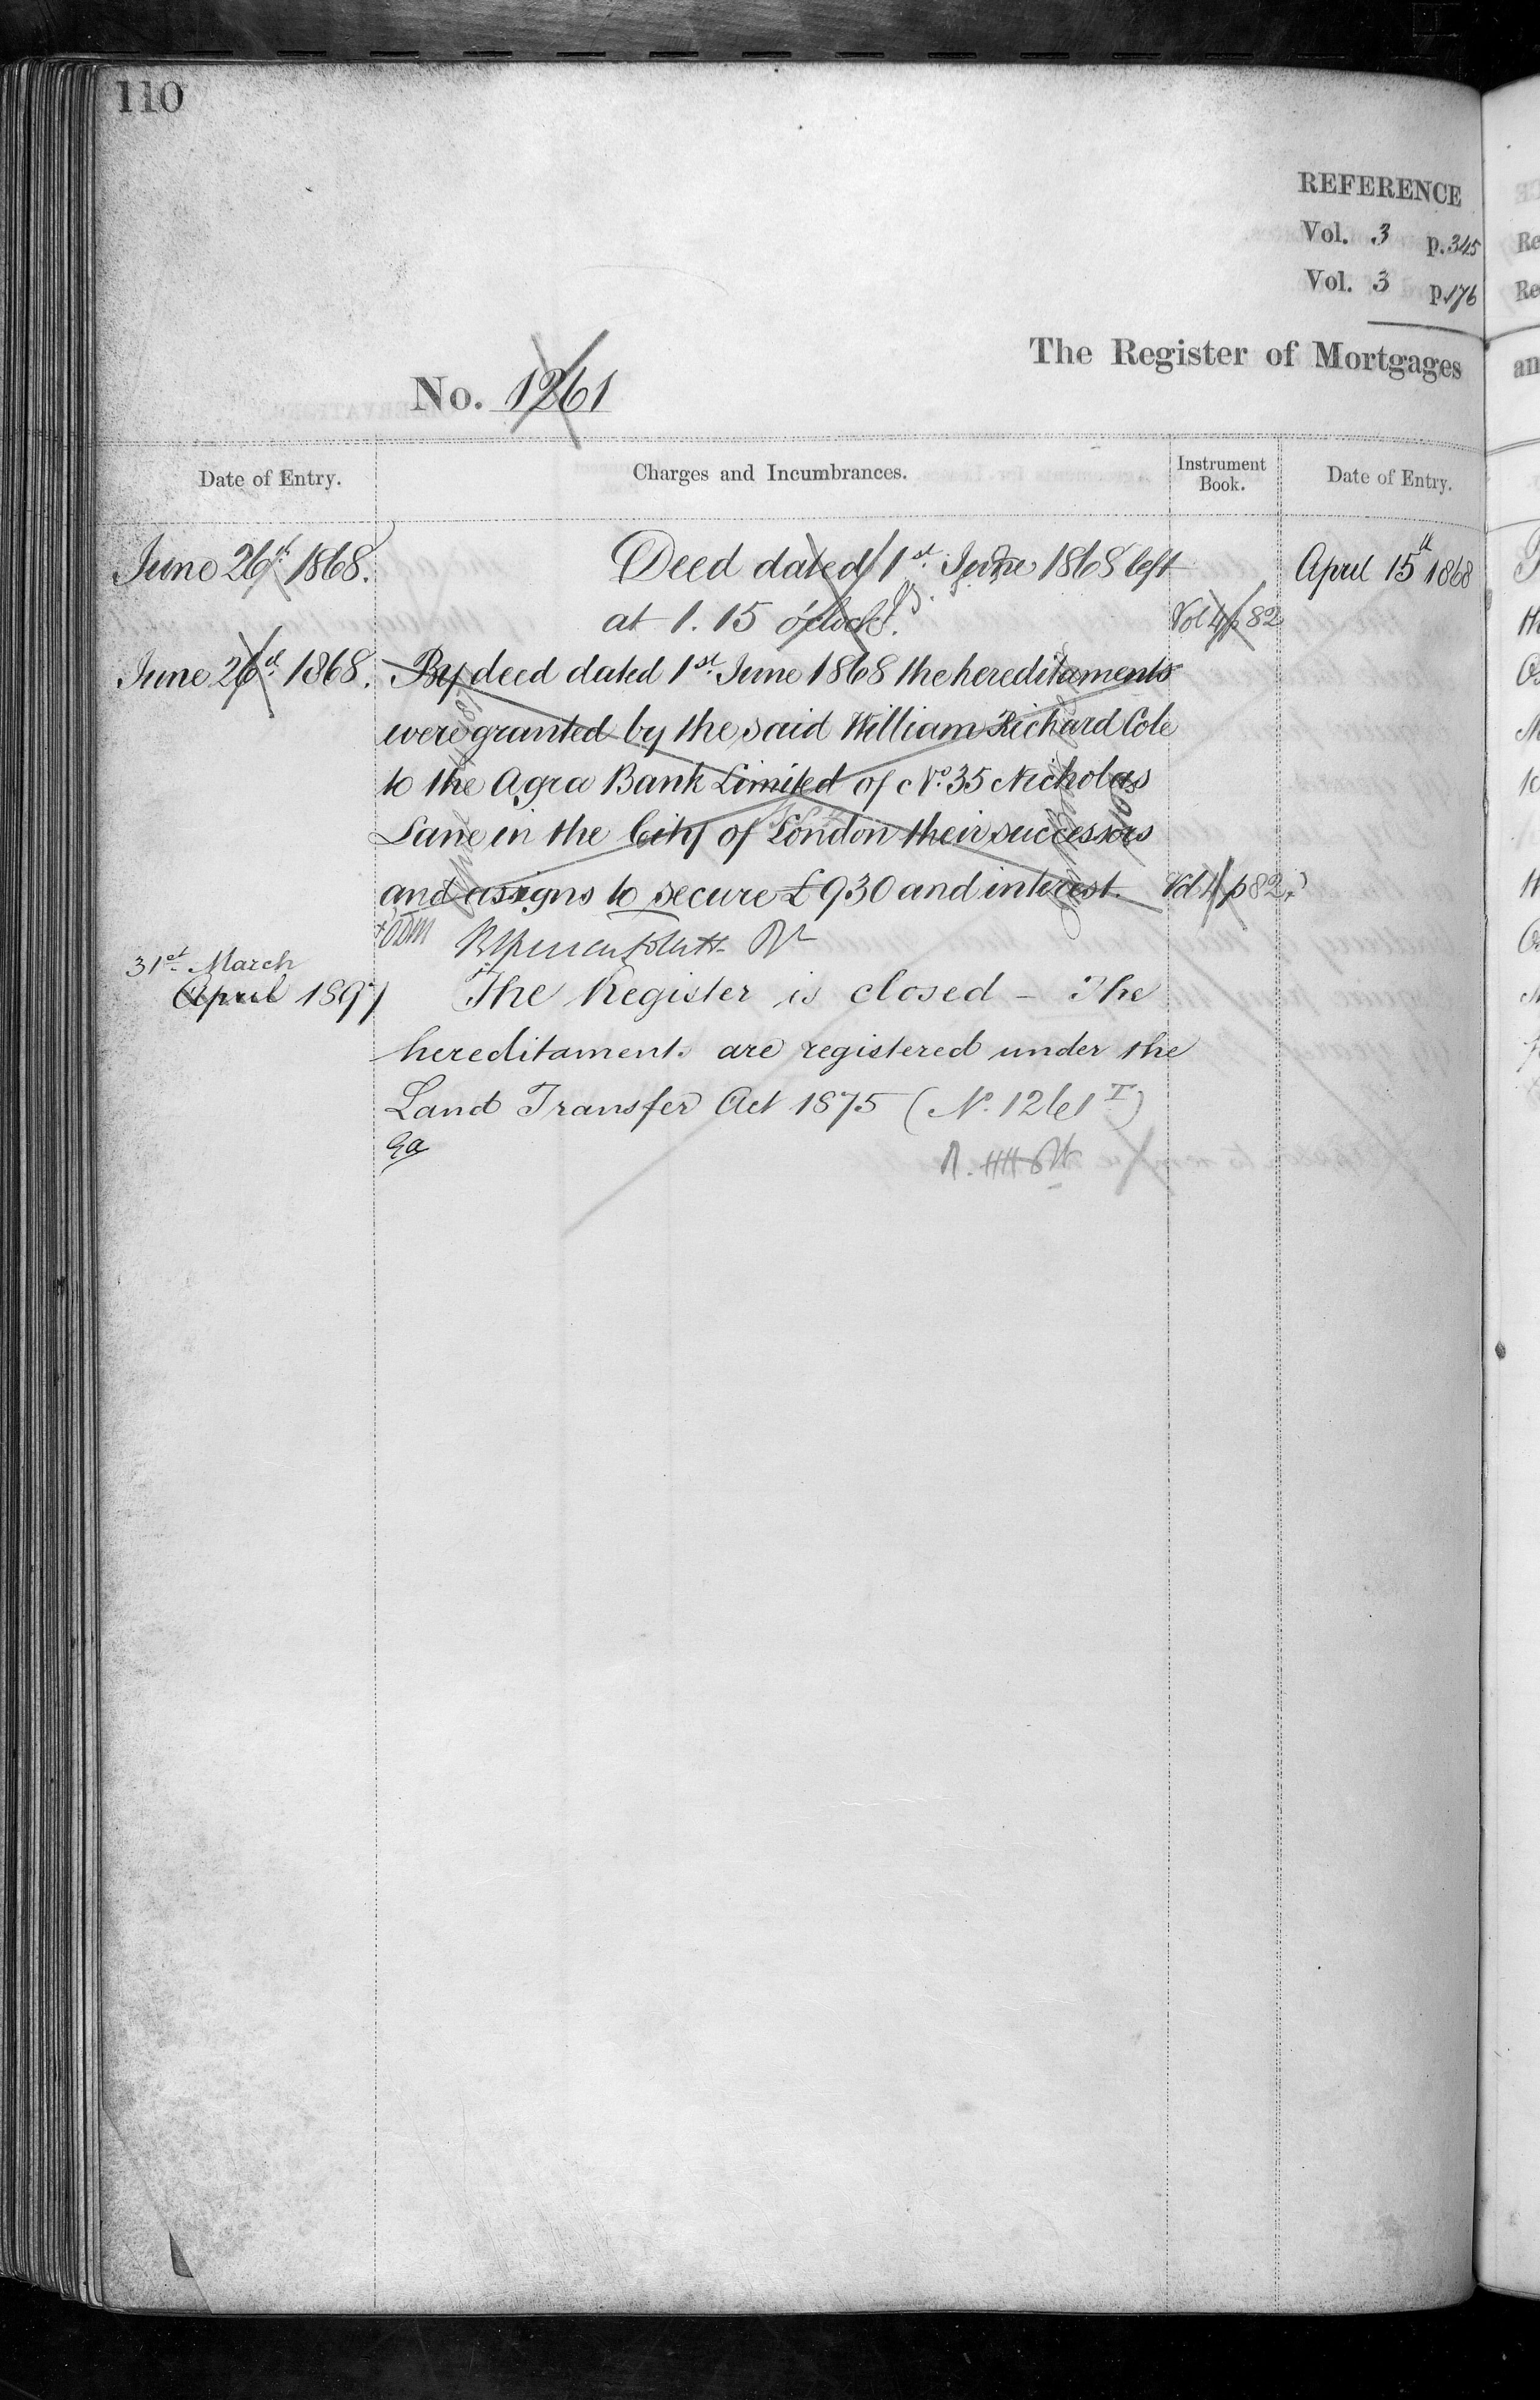 110
REFERENCE
Vol. 3 p. 345
Vol. 3 p. 176
The Register of Mortgages
No. 1261
Date of Entry.
Charges and Incumbrances.
Instrument Book.
Date of Entry.
June 26th 1868.
Deed dated 1st June 1868 left
April 15th 1868
at 1.15 o'clock.
Vol 4 p 82
June 26th 1868.
By deed dated 1st June 1868 the hereditaments
were granted by the said William Richard Cole
to the Agra Bank Limited of No. 35 Nicholas
Lane in the City of London their successors
and assigns to secure £930 and interest.
Vol 4 p 82
31st March
April 1897
The Register is closed - The
hereditaments are registered under the
Land Transfer Act 1875 (No. 1261 I)